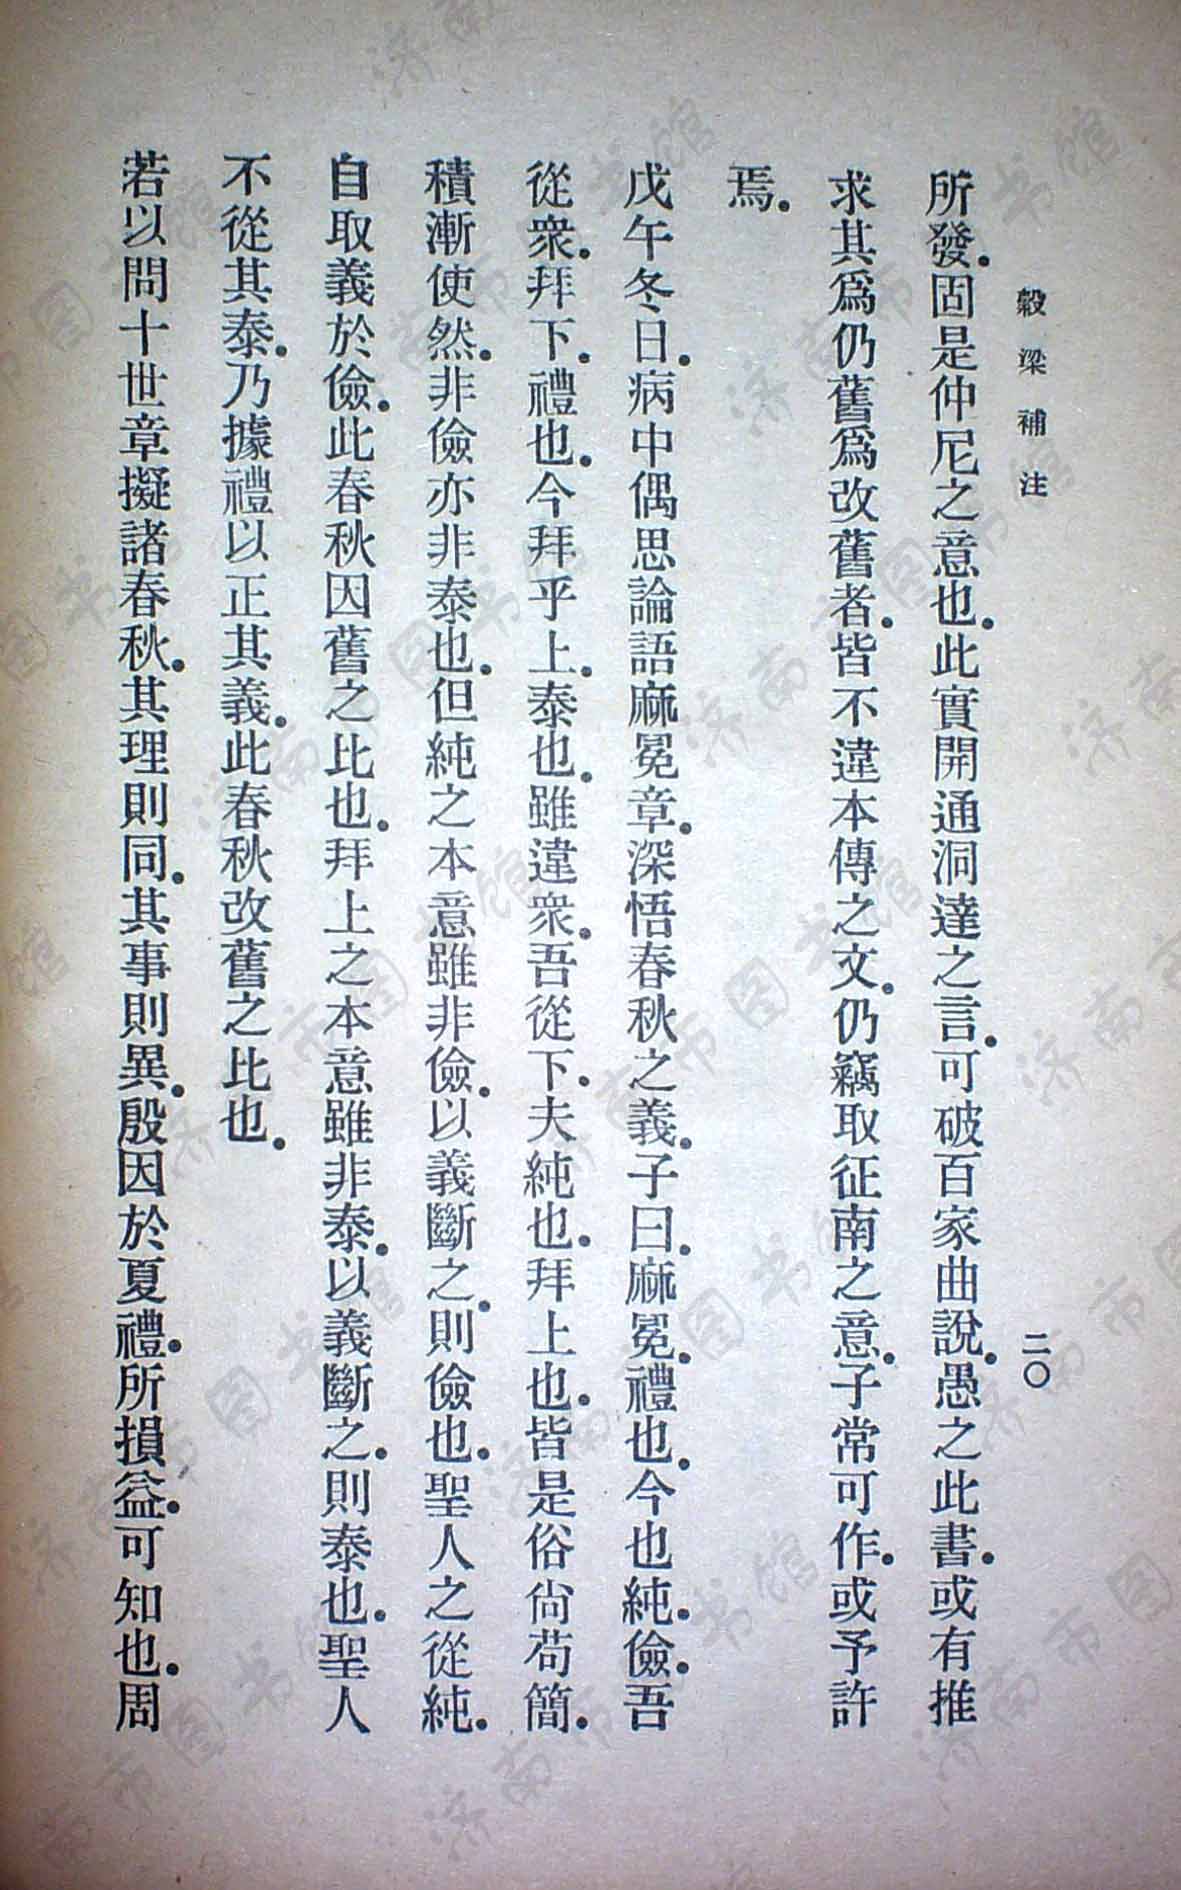 穀梁補注
二〇
所發.固是仲尼之意也.此實開通洞達之言.可破百家曲說.愚之此書.或有推
求其爲仍舊爲改舊者.皆不違本傳之文.仍竊取征南之意.子常可作.或予許
焉.
戊午冬日.病中偶思論語麻冕章.深悟春秋之義.子曰.麻冕.禮也.今也純.儉.吾
從衆.拜下.禮也.今拜乎上.泰也.雖違衆.吾從下.夫純也.拜上也.皆是俗尙苟簡.
積漸使然.非儉亦非泰也.但純之本意雖非儉.以義斷之.則儉也.聖人之從純.
自取義於儉.此春秋因舊之比也.拜上之本意雖非泰.以義斷之.則泰也.聖人
不從其泰.乃據禮以正其義.此春秋改舊之比也.
若以問十世章擬諸春秋.其理則同.其事則異.殷因於夏禮.所損益.可知也.周
济南市图书馆